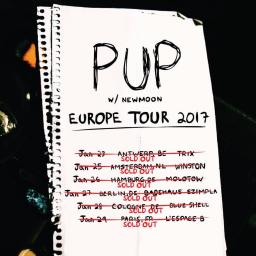 PUP
W/ NEWMOON
EUROPE TOUR 2017
Jan 23 ANTWERP, BE TRIX
SOLD OUT
Jan 25 AMSTERDAM, NL WINSTON
SOLD OUT
Jan 26 HAMBURG, DE MOLOTOW
SOLD OUT
Jan 27 BERLIN, DE BADEHAUS SZIMPLA
SOLD OUT
Jan 28 COLOGNE, DE BLUE SHELL
SOLD OUT
Jan 29 PARIS, FR L'ESPACE B
SOLD OUT